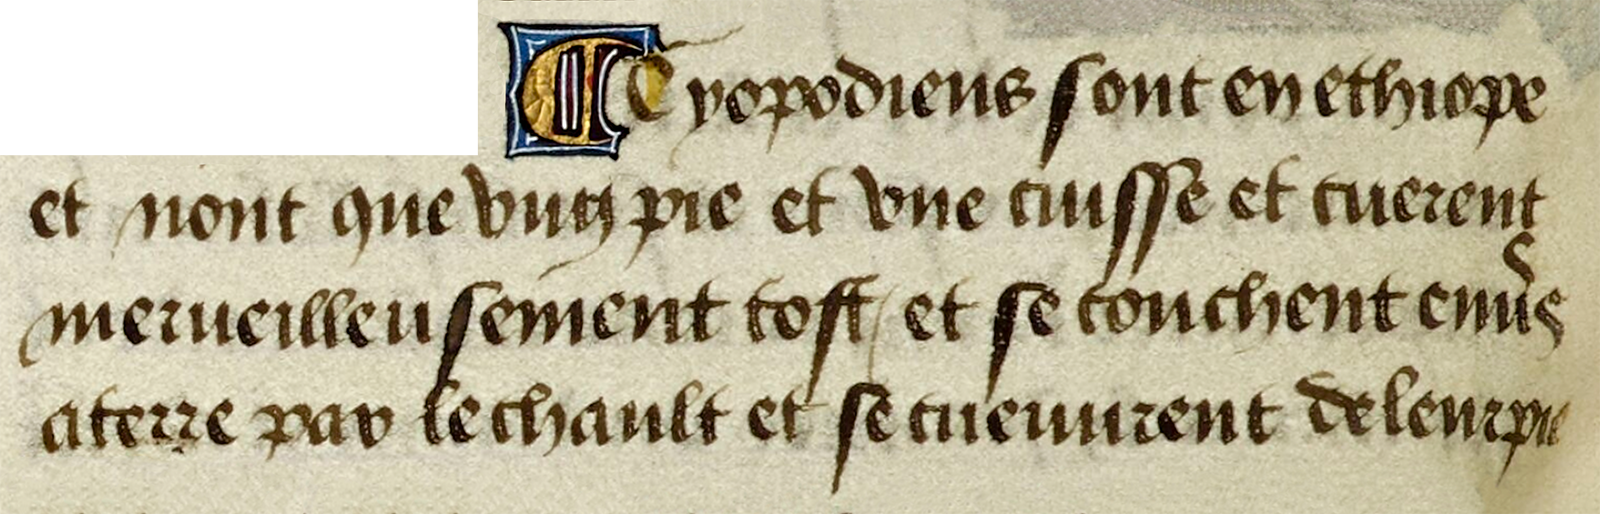 Cyopodiens sont en ethiope
et nont que vng pie et vne cuisse et cuerent
merueilleusement tost et se couchent enuers
a terre par le chault et se cueuurent de leur pie